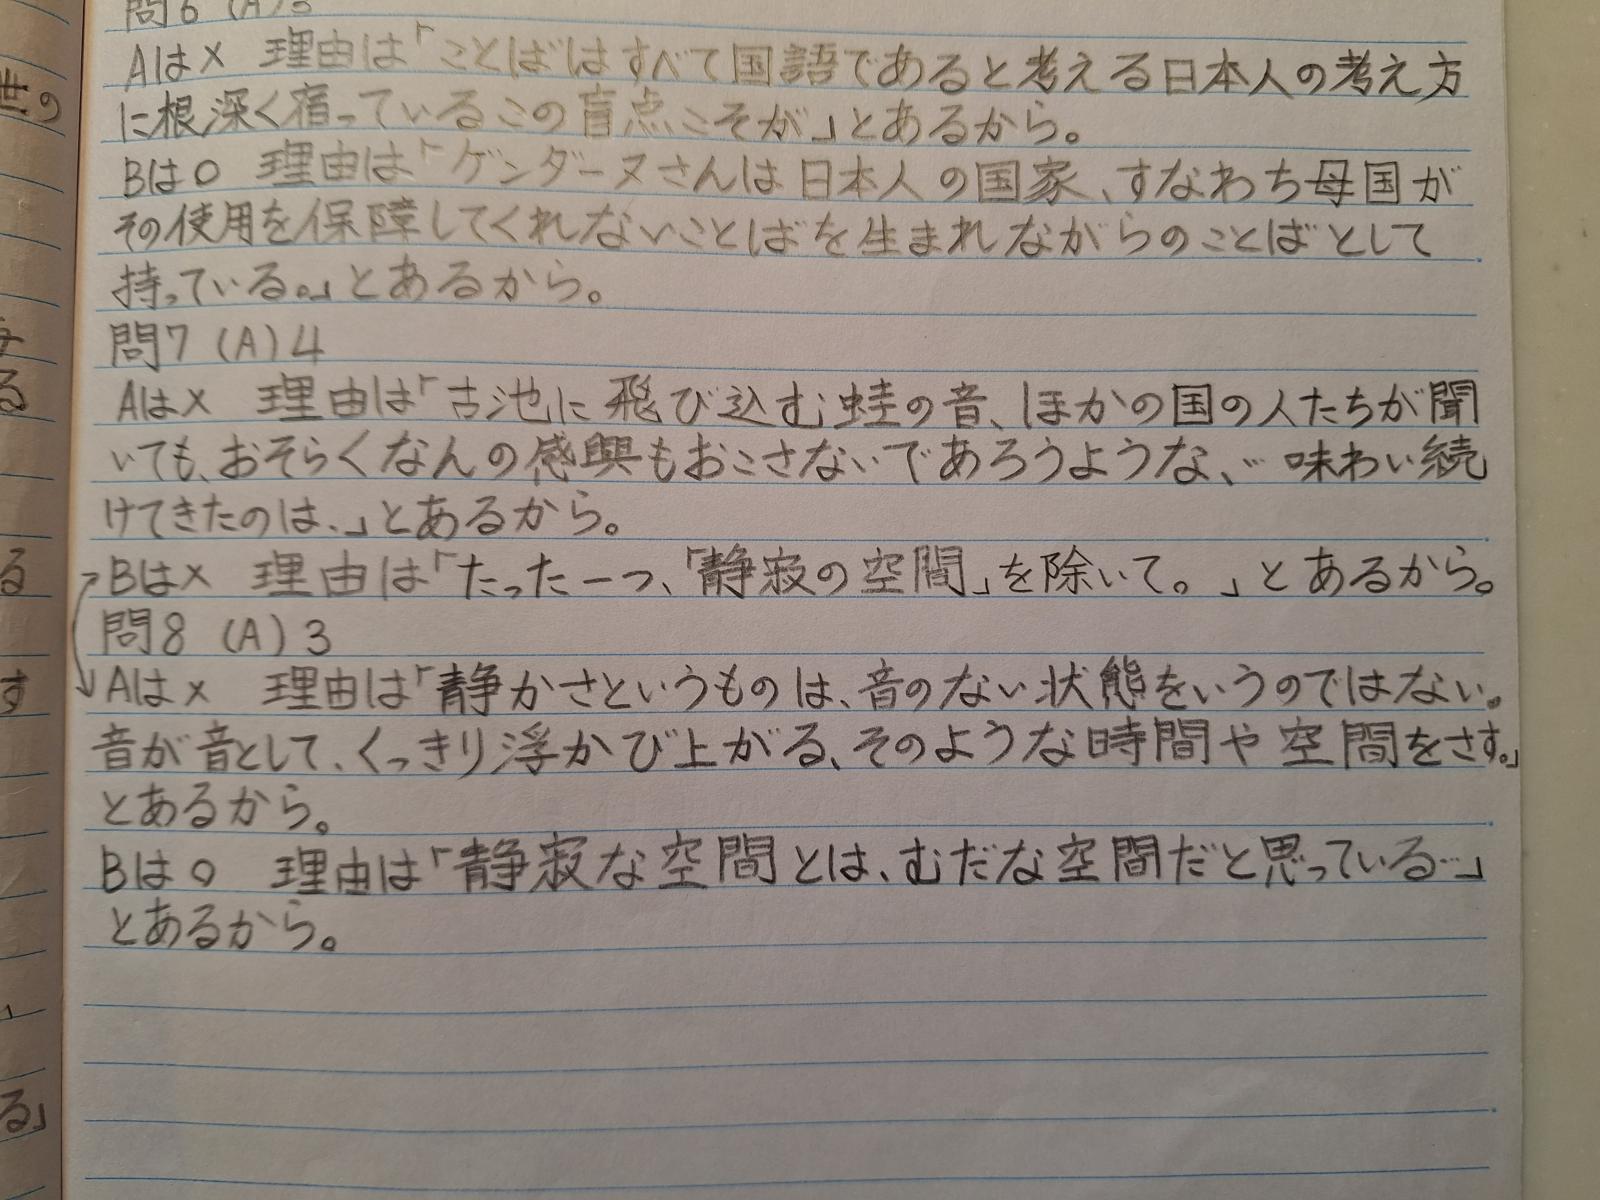 問6 (A)3
Aは× 理由は「ことばはすべて国語であると考える日本人の考え方
に根深く宿っているこの盲点こそが」とあるから。
Bは○ 理由は「ゲンダーヌさんは日本人の国家、すなわち母国が
その使用を保障してくれないことばを生まれながらのことばとして
持っている。」とあるから。
問7 (A)4
Aは× 理由は「古池に飛び込む蛙の音、ほかの国の人たちが聞
いても、おそらくなんの感興もおこさないであろうような、… 味わい続
けてきたのは、」とあるから。
Bは× 理由は「たった一つ、「静寂の空間」を除いて。」とあるから。
問8 (A)3
Aは× 理由は「静かさというものは、音のない状態をいうのではない。
音が音として、くっきり浮かび上がる、そのような時間や空間をさす。」
とあるから。
Bは○ 理由は「静寂な空間とは、むだな空間だと思っている…」
とあるから。
世の
る
る
す
る」